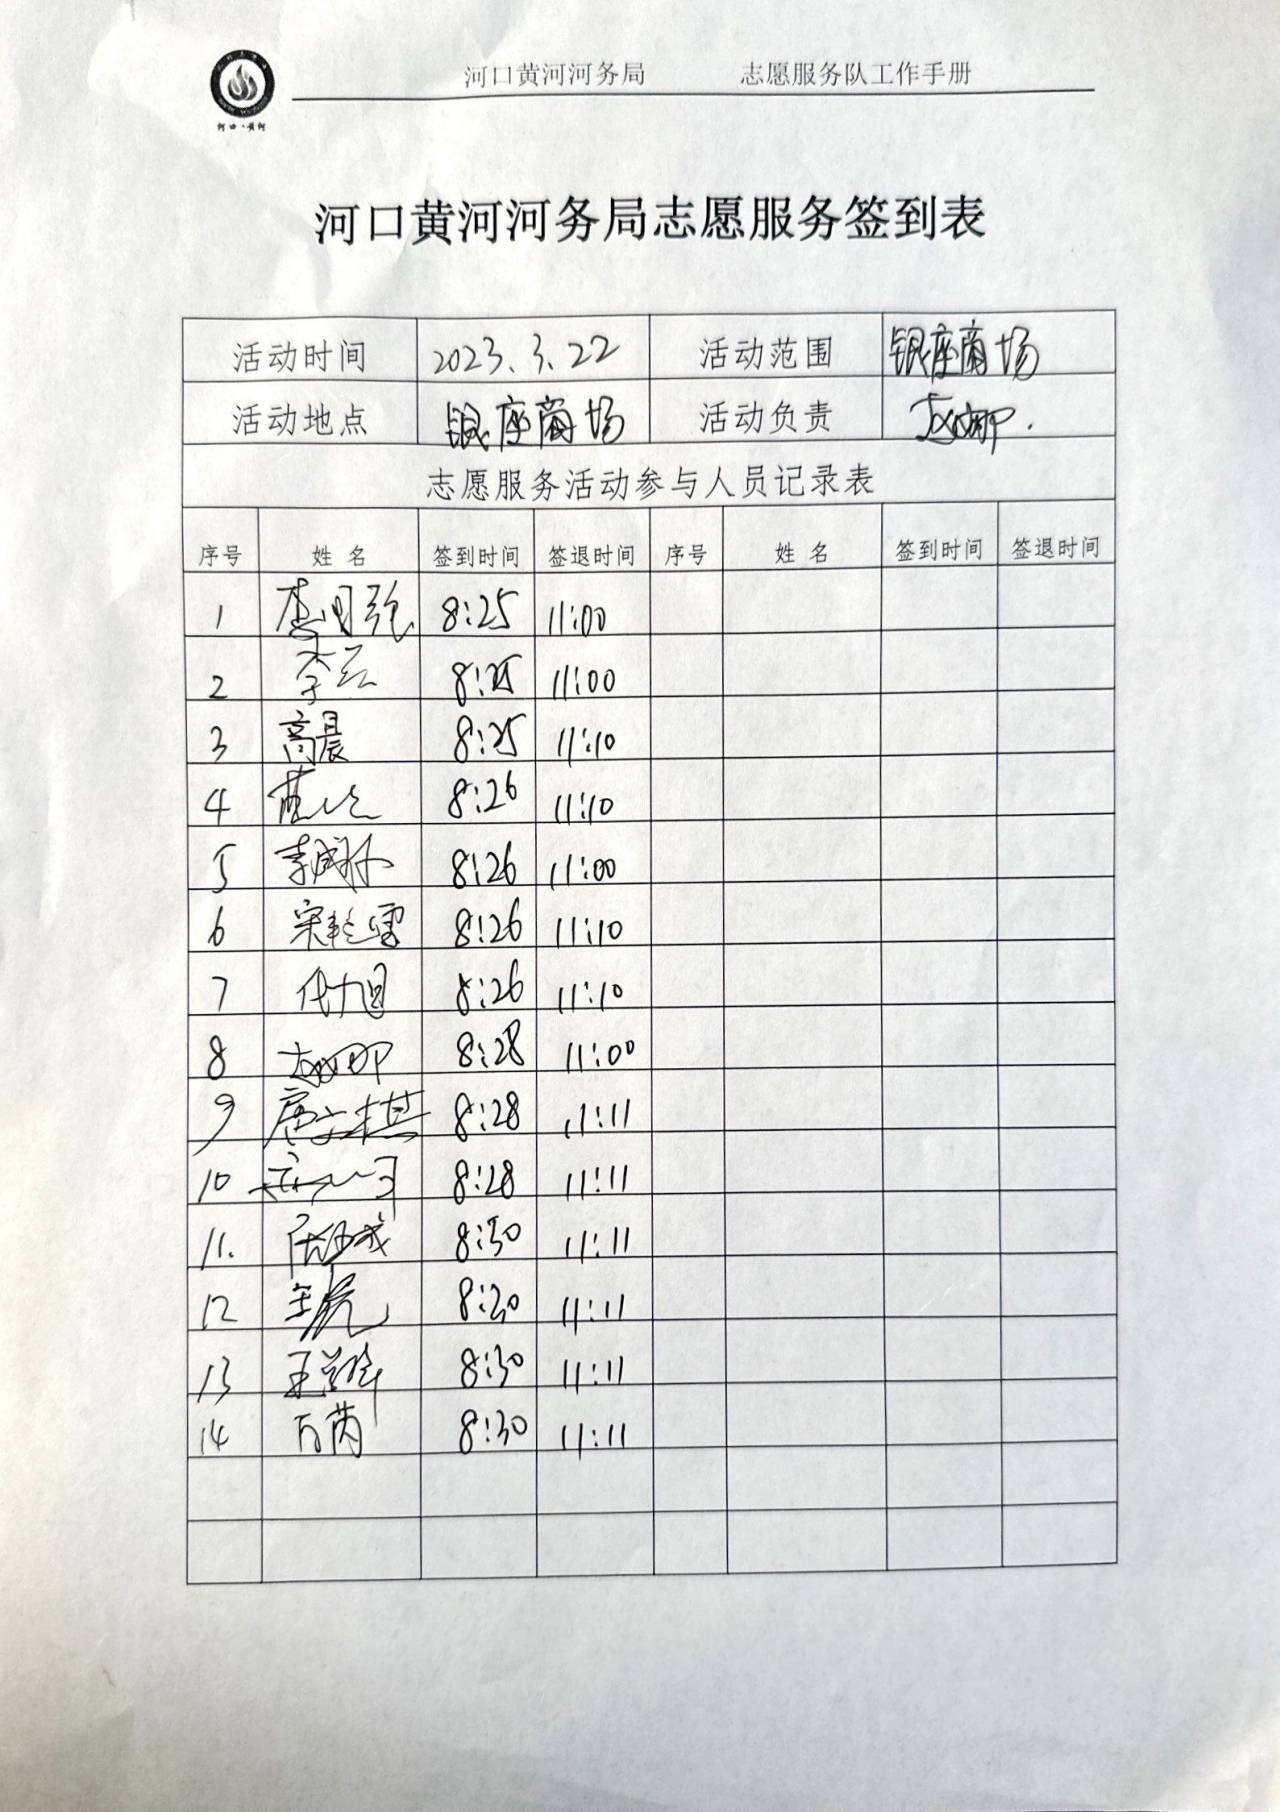 河口·黄河
河口黄河河务局 志愿服务队工作手册
河口黄河河务局志愿服务签到表
活动时间 2023.3.22 活动范围 银座商场
活动地点 银座商场 活动负责 赵娜.
志愿服务活动参与人员记录表
序号 姓名 签到时间 签退时间 序号 姓名 签到时间 签退时间
1 8:25 11:00
2 8:25 11:00
3 高晨 8:25 11:10
4 8:26 11:10
5 8:26 11:00
6 宋艳雪 8:26 11:10
7 代旭 8:26 11:10
8 赵娜 8:28 11:00
9 8:28 11:11
10 8:28 11:11
11. 8:30 11:11
12 8:30 11:11
13 8:30 11:11
14 万芮 8:30 11:11